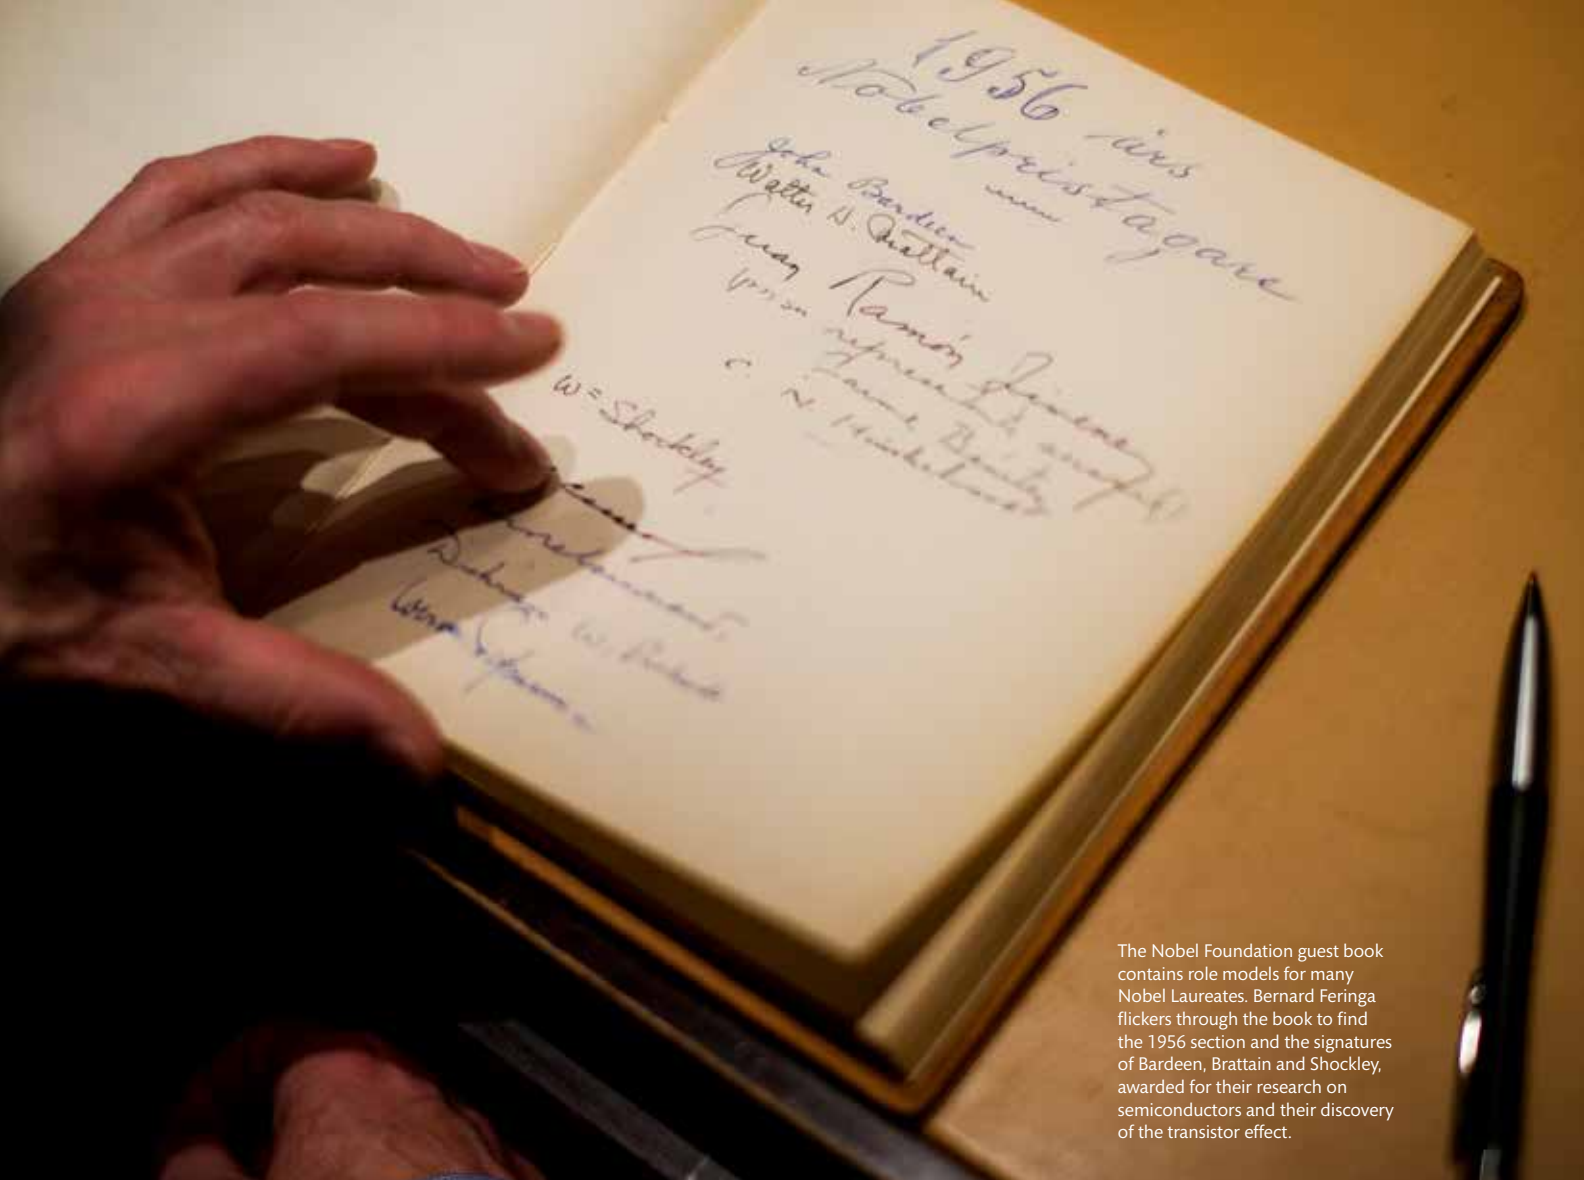 1956 års
Nobelpristagare
John Bardeen
Walter H. Brattain
Juan Ramón Jiménez
Jaime Benítez
C. N. Hinshelwood
W = Shockley
Dickinson W. Richards
Werner Forssmann
The Nobel Foundation guest book
contains role models for many
Nobel Laureates. Bernard Feringa
flickers through the book to find
the 1956 section and the signatures
of Bardeen, Brattain and Shockley,
awarded for their research on
semiconductors and their discovery
of the transistor effect.